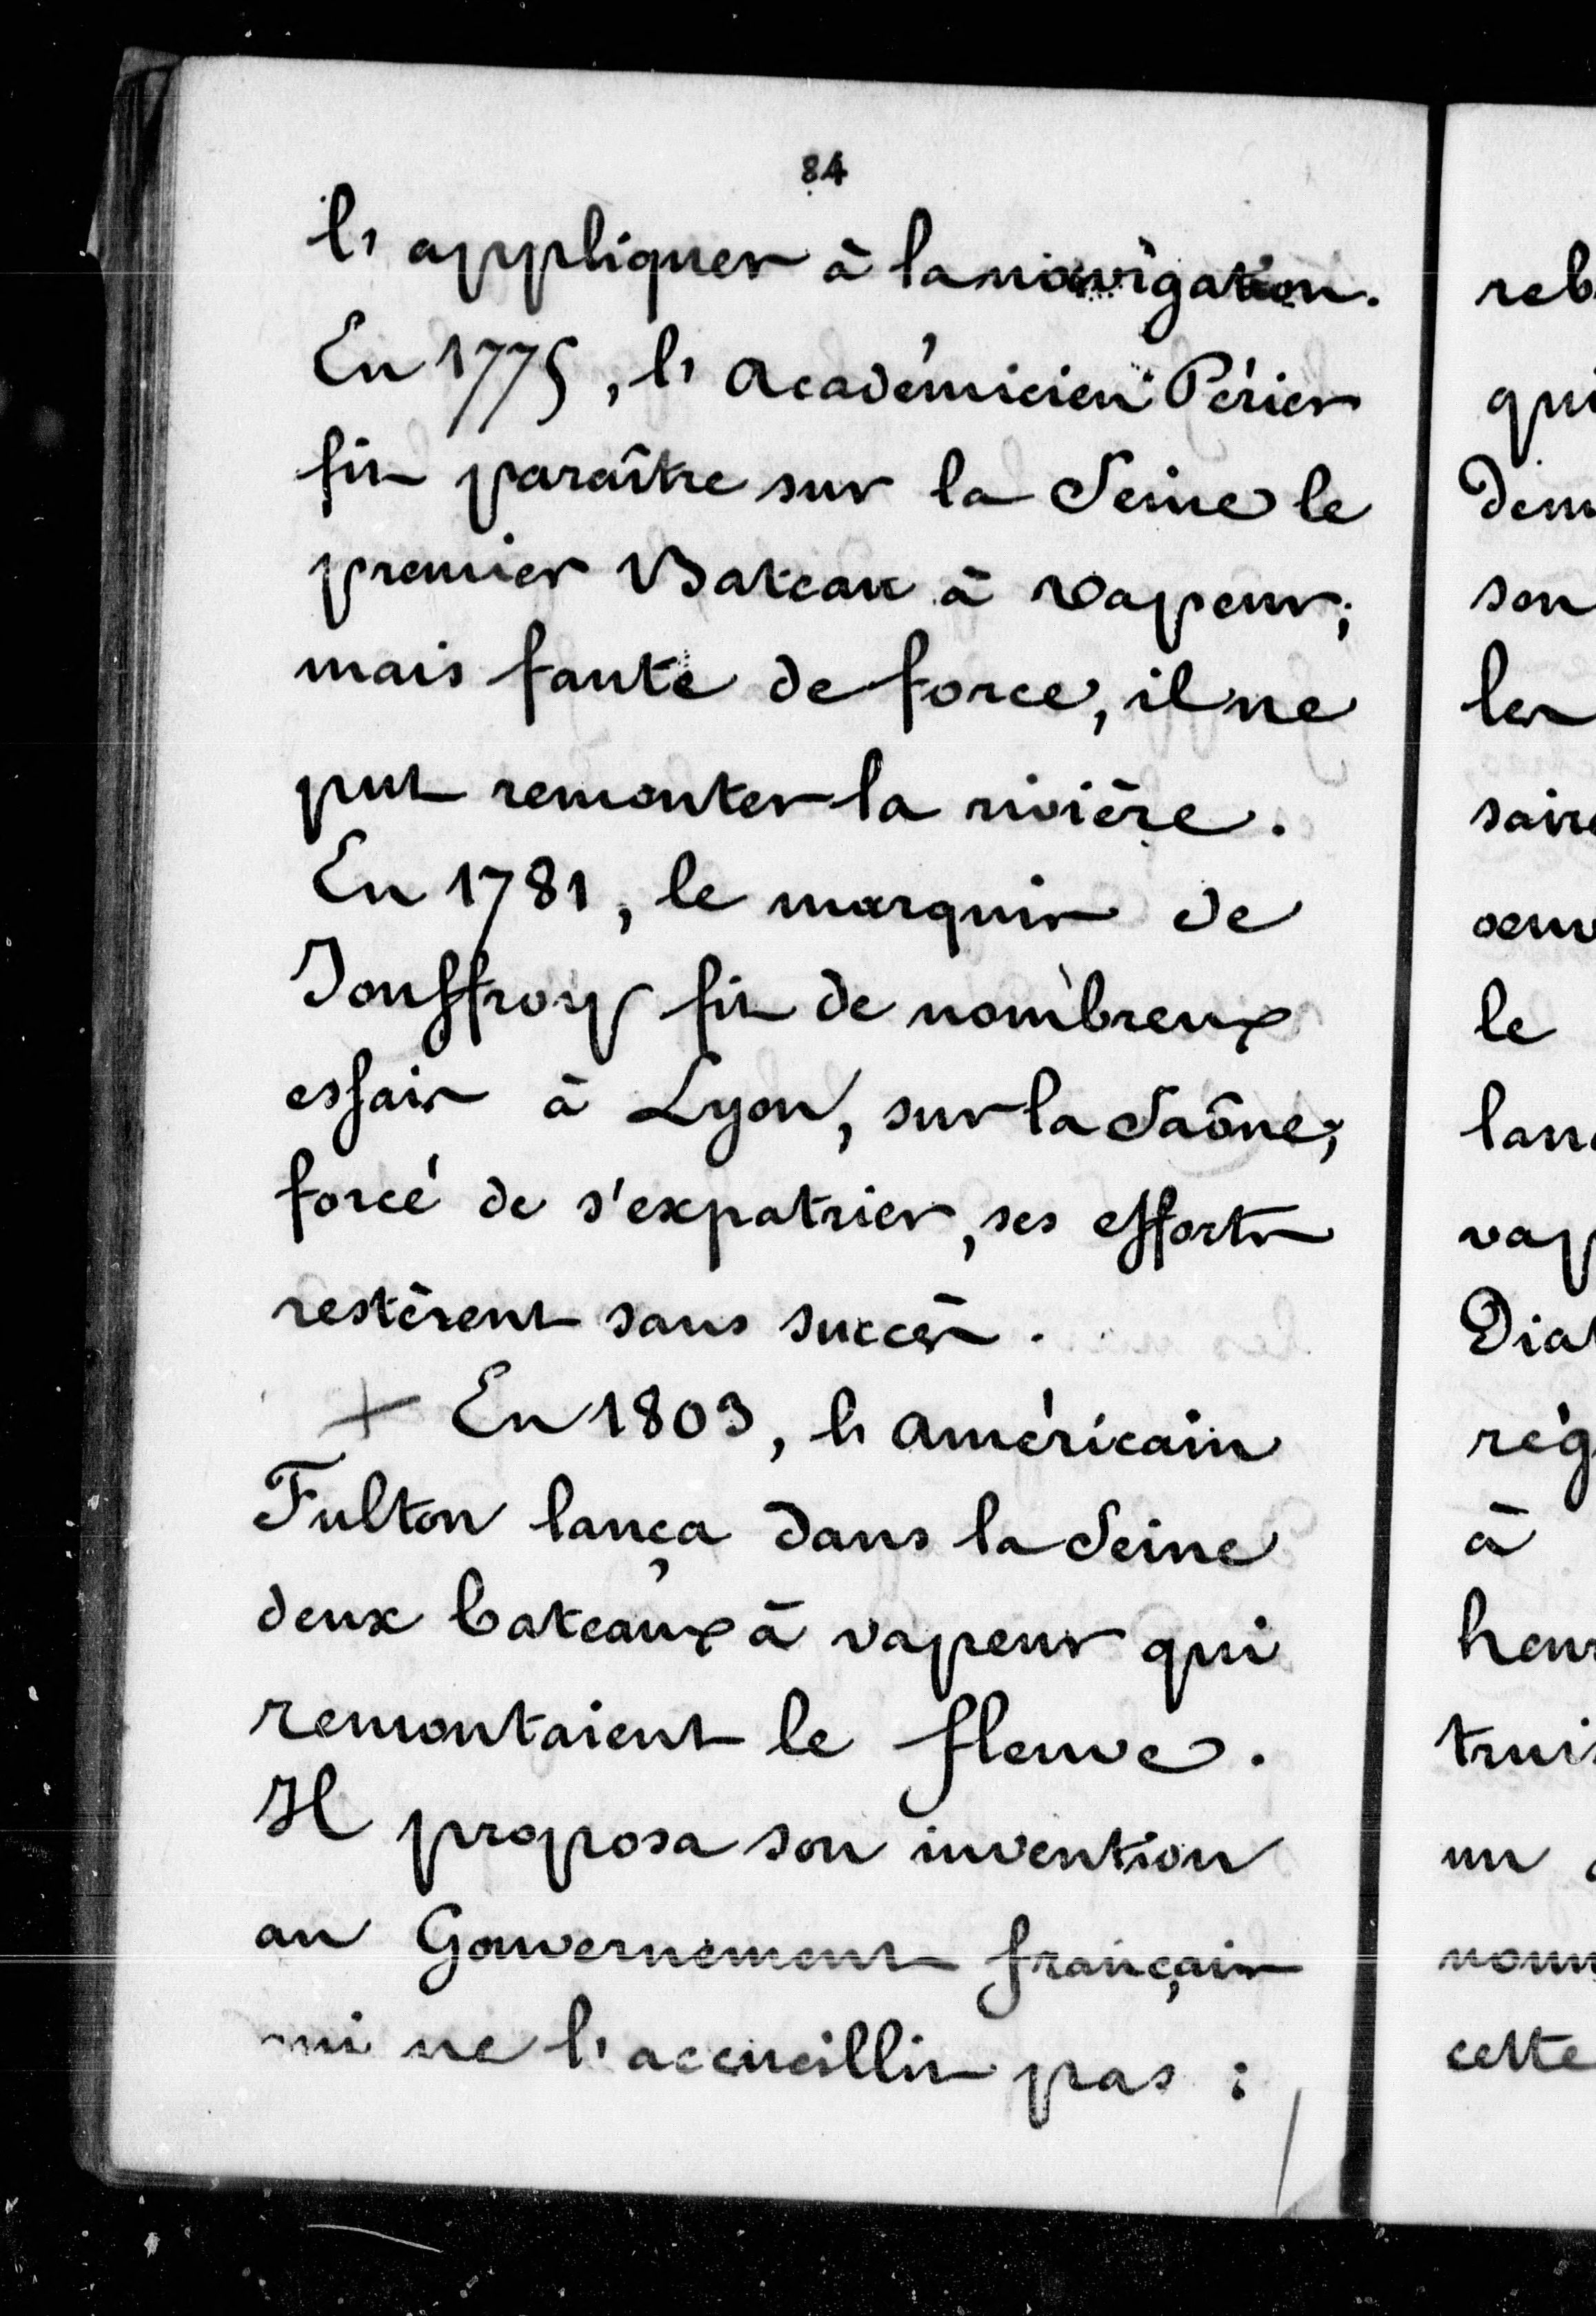 84
l'appliquer à la navigation.
En 1775, l'Académicien Périer
fit paraître sur la Seine le
premier Bateau à vapeur;
mais faute de force, il ne
put remonter la rivière.
En 1781, le marquis de
Jouffroy fit de nombreux
essais à Lyon, sur la Saône;
forcé de s'expatrier, ses efforts
restèrent sans succès.
+ En 1803, l'américain
Fulton lança dans la Seine
deux bateaux à vapeur qui
remontaient le fleuve.
Il proposa son invention
au Gouvernement français
qui ne l'accueillit pas :
reb
qui
son
les
le
vap
à
un
cette